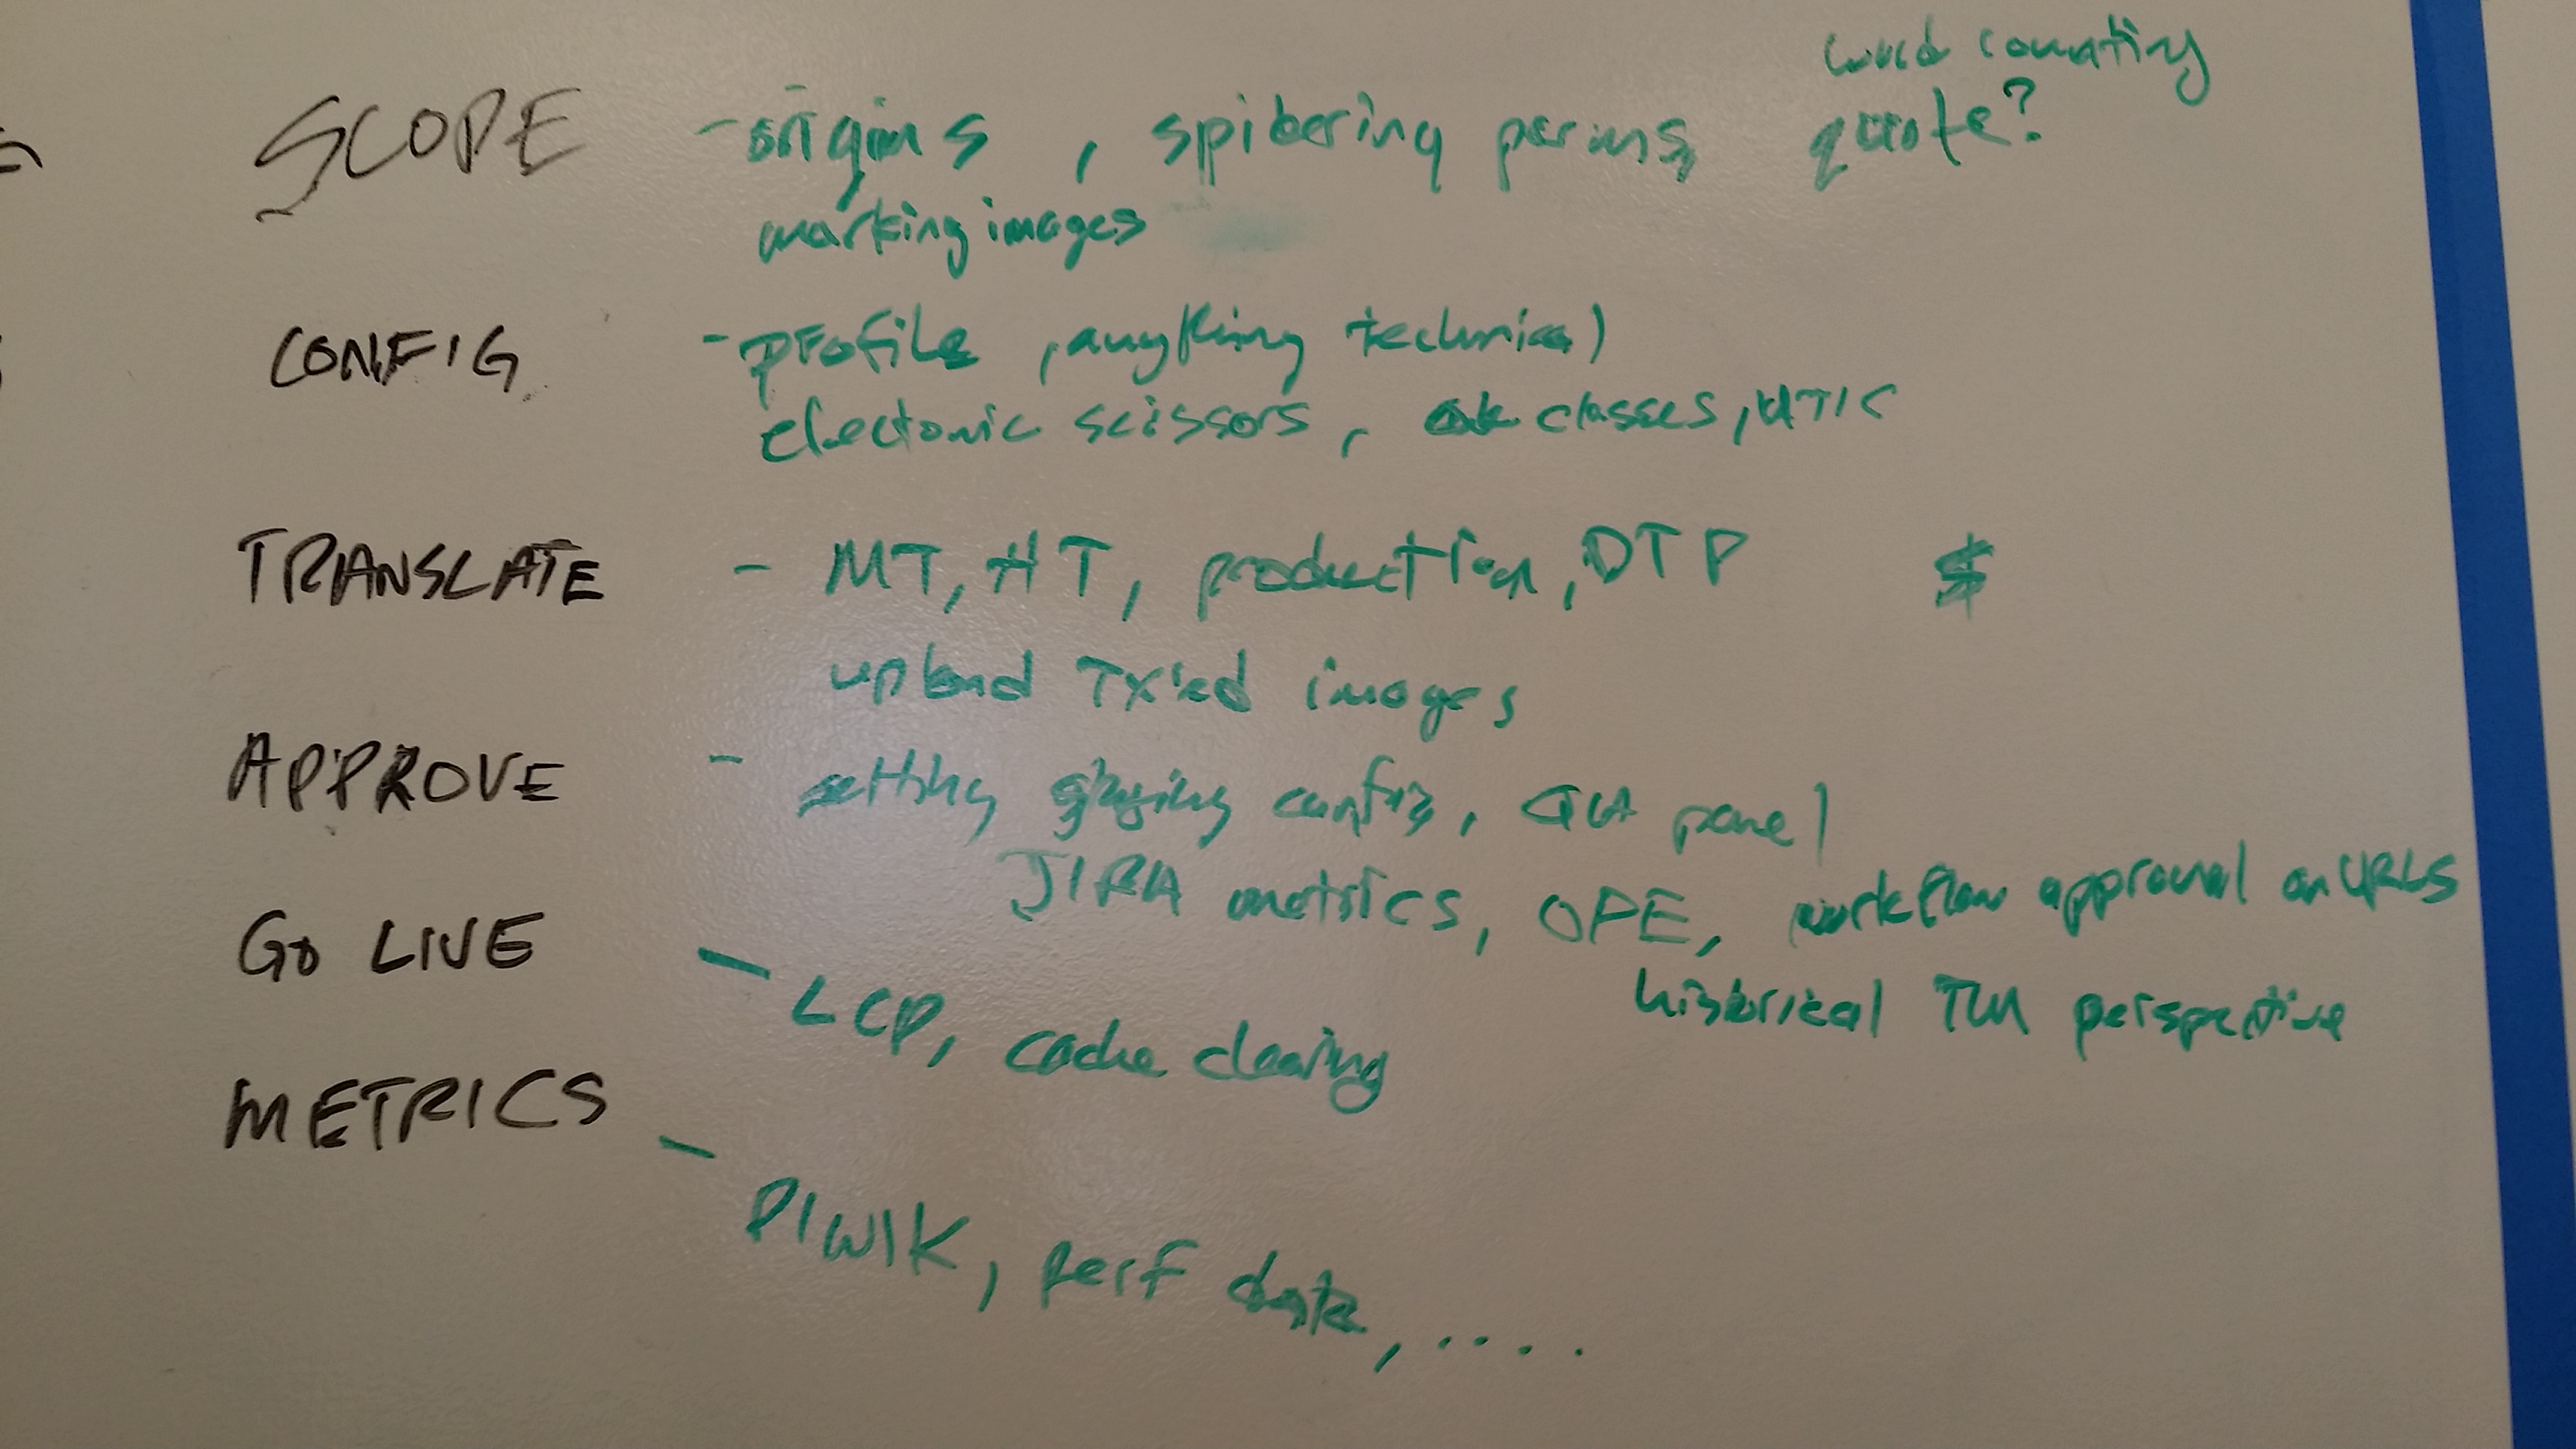 word counting
SCOPE - origins, spidering perms quote?
marking images
CONFIG - profile, anything technical
electonic scissors, classes,
TRANSLATE - MT, HT, production, DTP $
upload TX'ed images
APPROVE - setting staging config, QA panel
JIRA metrics, OPE, workflow approval on URLS
historical TM perspective
GO LIVE - LCP, cache clearing
METRICS - PIWIK, perf data, ....